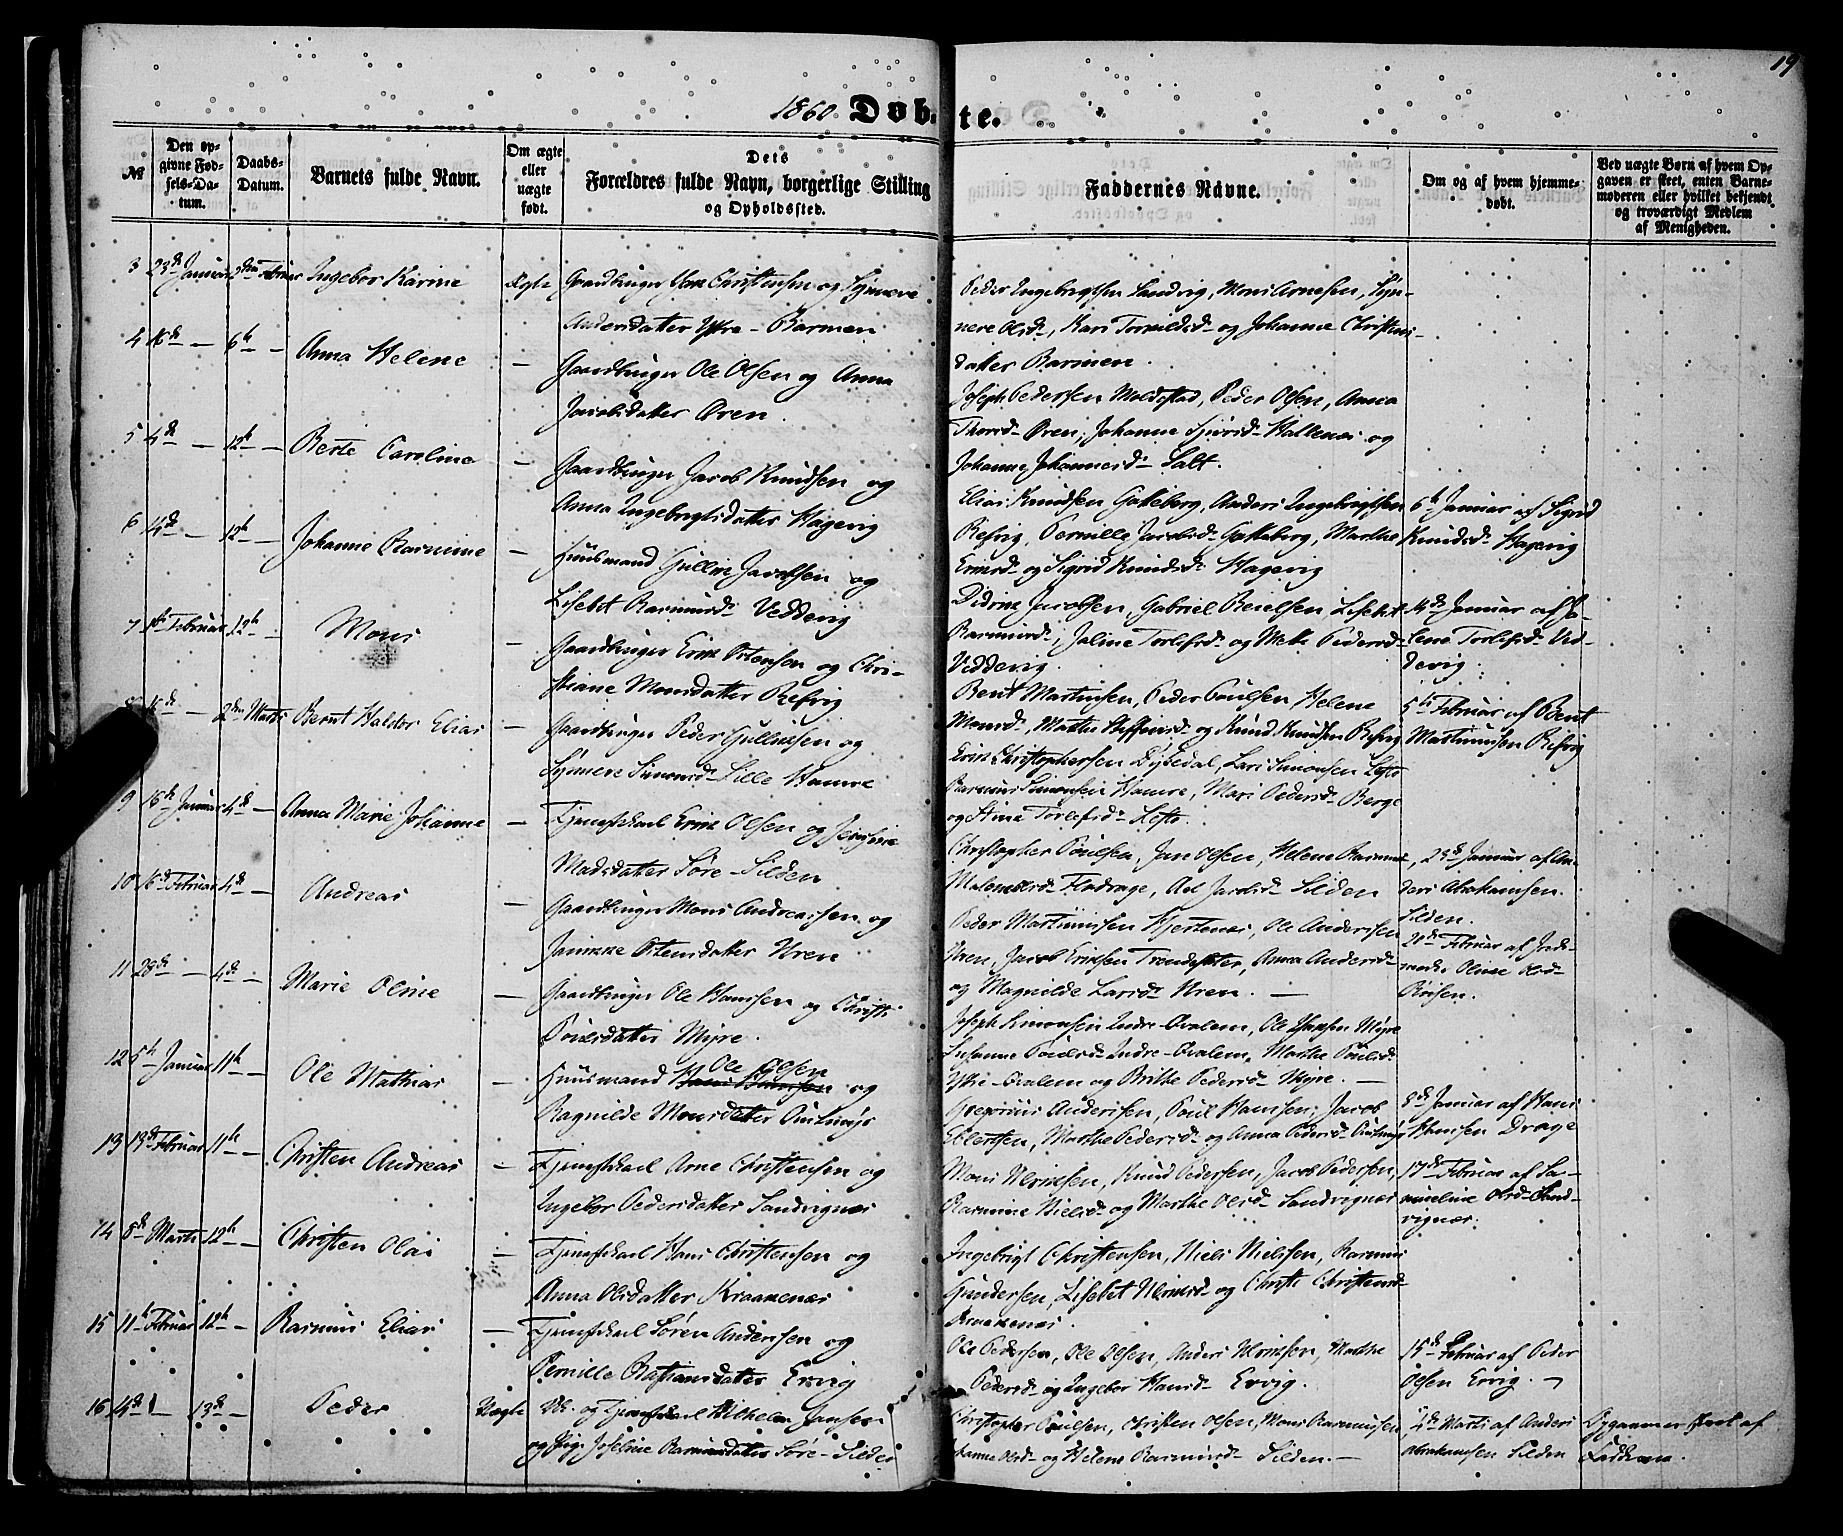 19
1860. Døbte.
№
Den opgivne Fødsels-Datum.
Daabs-Datum.
Barnets fulde Navn.
Om ægte eller uægte født.
Dets Forældres fulde Navn, borgerlige Stilling og Opholdssted.
Faddernes Navne.
Om og af hvem hjemmedøbt.
Ved uægte Børn af hvem Opgaven er skeet, enten Barnemoderen eller hvilket bekjendt og troværdigt Medlem af Menigheden.
3 23de Januar Februar Ingebor Karine Ægte Gaardbruger Christensen og Synneve
Andersdatter Ytre-Barmen
Peder Ingebrigtsen Sandvig, Mons Arnesen, Syn-
neve Olsd, Kari Torkildsd og Johanne Christens-
datter Barmen.
4 16de — 6te — Anna Helene — Gaardbruger Ole Olsen og Anna
Jacobsdatter Øren.
Joseph Pedersen Moldestad, Peder Olsen, Anna
Thorsd Øren, Johanne Sjursd Hallenæs og
Johanne Johannesd Salt.
5 4de — 12te — Berte Caroline — Gaardbruger Jacob Knudsen og
Anna Ingebrigtsdatter Hagevig
Elias Knudsen Gotteberg, Anders Ingebrigtsen
Refvig, Pernille Jacobsd Gotteberg, Marthe
og Sigrid Knudsd Hagevig
6te Januar af Sigrid
Knudsd Hagevig
6 4de — 12te — Johanne Rasmine — Huusmand Gullik Jacobsen og
Lisebet Rasmusd Veddevig
Didrik Jacobsen, Gabriel Lisebet
Rasmusd, Jaline Torlefsd og Mette Pedersd
Veddevig.
4de Januar af Ja-
lene Torlefsd Ved-
devig.
7 Februar 12te — Mons — Gaardbruger Erik Ostensen og Chri-
stiane Monsdatter Refvig
Bent Martinsen, Peder Poulsen Helene
Monsd, Marthe Steffensd og Knud Knudsen Refvig
5te Februar af Bent
Martinusen Refvig
8 — 2den Marts Bernt Haldor Elias — Gaardbruger Peder Gulliksen og
Synneve Simonsd Lille Hamre
Erik Christophersen Dybedal, Lars Simonsen Lofto
Rasmus Simonsen Hamre, Mari Pedersd Berge
og Stina Torlefsd Lofto.
9 Januar 4de — Anna Marie Johanne — Tjenstkarl Erik Olsen og
Madsdatter Søre-Silden
Christopher Poulsen, Jan Olsen, Helene
Flodrage, Jacobsd Silden
25de Januar af An-
ders Abrahamsen
Silden.
10 Februar 4de — Andreas — Gaardbruger Mons Andreassen og
Jannikke Ostensdatter Hren
Peder Martinusen Hjertenæs, Ole Andersen
Hren, Jacob Eriksen, Anna Andersd
og Magnilde Larsd Hren. —
20de Februar af Jord-
moder Oline Olsd
11 28de — 4de — Marie Oline — Gaardbruger Ole Hansen og Christi
Poulsdatter Myre.
Joseph Simonsen Indre-Qvalem, Ole Hansen Myre
Susanne Poulsd Indre-Qvalem, Marthe Poulsd
Ytre-Qvalem og Britte Pedersd Myre. —
12 Januar 11te — Ole Mathias — Huusmand Ole Olsen og
Ragnilde Monsdatter
Gregorius Andersen, Poul Hansen, Jacob
Ellertsen, Marthe Pedersd og Anna Pedersd
8de Januar af Hans
Hansen Drage
13 Februar 11te — Christen Andreas — Tjenstkarl Arne Christensen og
Ingebor Pedersdatter Sandvignæs
Mons Ulriksen, Knud Pedersen, Jacob Pedersen,
Rasmine Nielsd og Marthe Olsd Sandvignæs
17de Februar af Sa-
mueline Olsd Sand-
vignæs.
14 8de Marts 12te — Christen Olai — Tjenstkarl Hans Christensen og
Anna Olsdatter Kraakenæs
Ingebrigt Christensen, Niels Nielsen, Rasmus
Gundersen, Lisebet og Christi Christensd
Kraakenæs.
15 11te Februar 12te — Rasmus Elias — Tjenstkarl Søren Andersen og
Pernille Bastiansdatter Ervig
Ole Pedersen, Ole Olsen, Anders Ulriksen, Marthe
Pedersd og Ingebor Hansd Ervig.
15de Februar af Peder
Olsen Ervig.
16 4de — 13de — Peder Uægte Tjenstkarl Wilhelm Jansen
og Pige Joseline Rasmusdatter Søre-Silden
Christopher Poulsen, Christen Olsen, Mons Rasmussen
Olsd og Helene Rasmusd Silden. —
4de Marts af Anders
Abrahamsen Silden
Opgaven er skeet af
Fadderne.